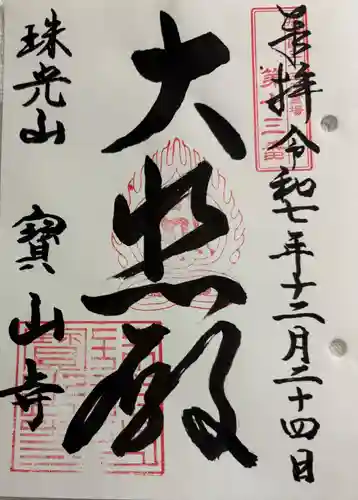 奉拝 令和七年十二月二十四日
第十三番
大悲殿
珠光山 寶山寺